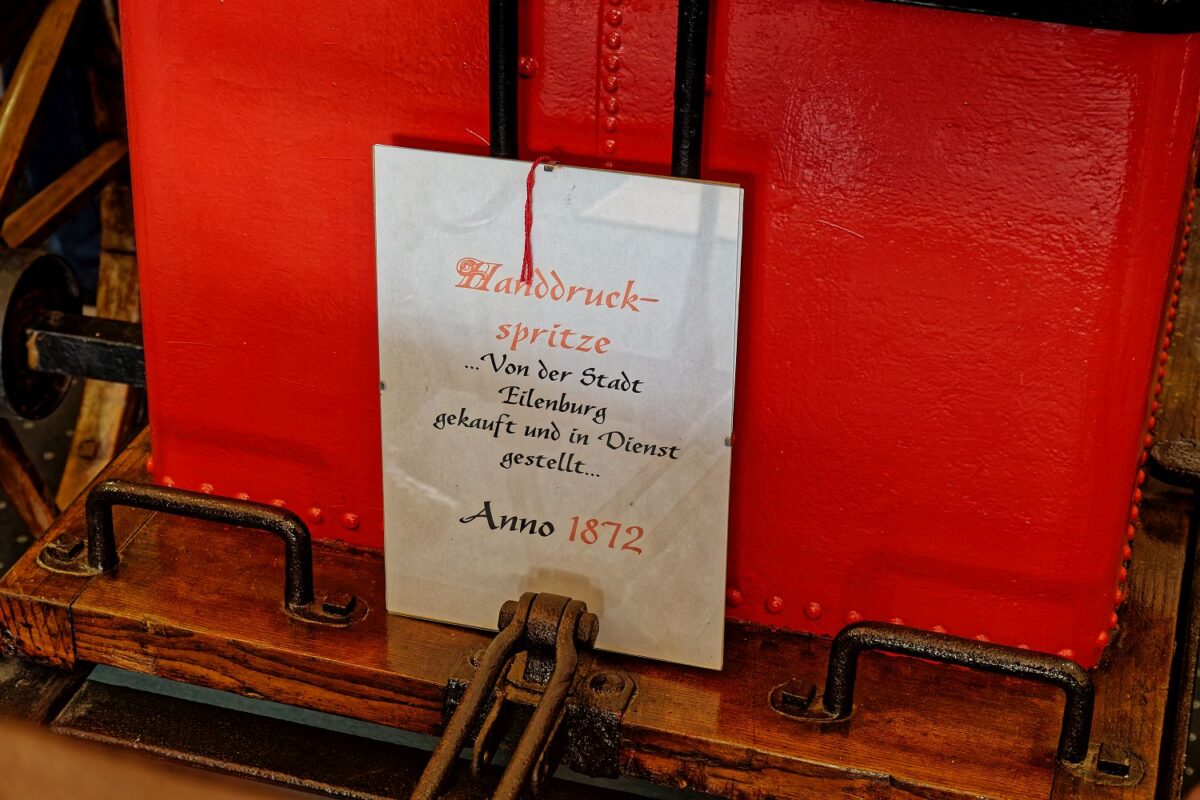 Handdruck-
spritze
...Von der Stadt
Eilenburg
gekauft und in Dienst
gestellt...
Anno 1872